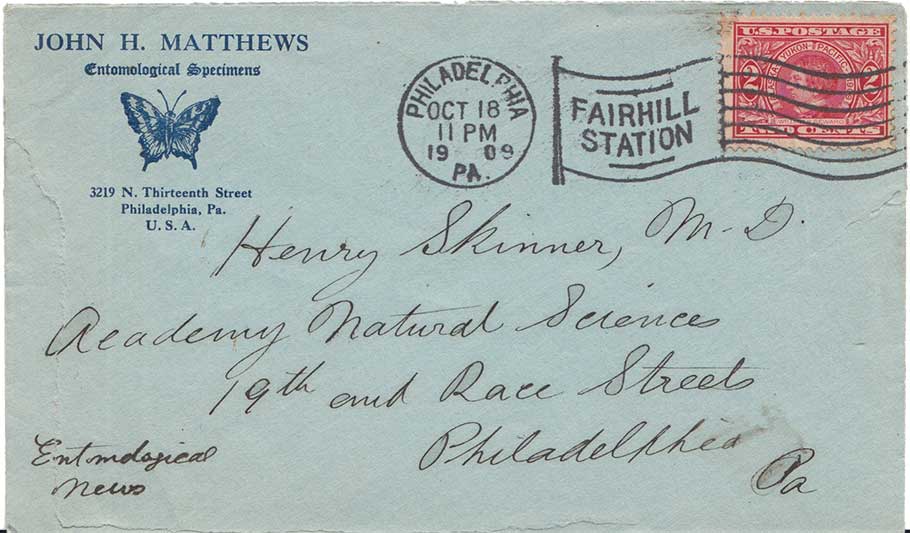 JOHN H. MATTHEWS
Entomological Specimens
3219 N. Thirteenth Street
Philadelphia, Pa.
U. S. A.
PHILADELPHIA
OCT 18
11 PM
1909
PA.
FAIRHILL
STATION
U.S. POSTAGE
2 2
TWO CENTS
Henry Skinner, M. D.
Academy Natural Sciences
19th and Race Streets
Philadelphia
Pa
Entmological
News